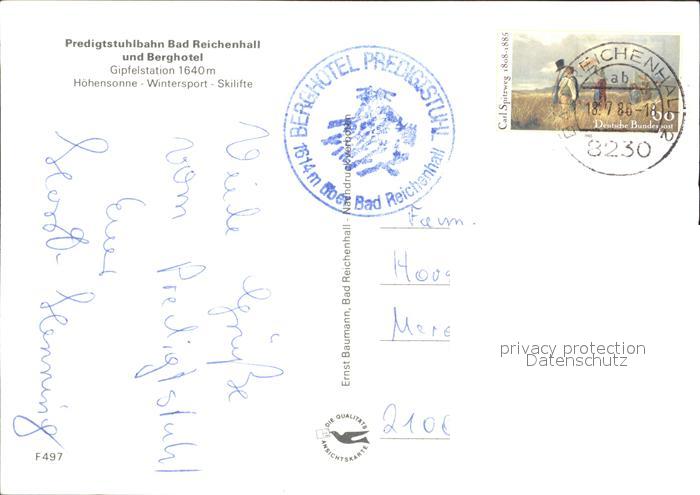 Predigtstuhlbahn Bad Reichenhall
und Berghotel
Gipfelstation 1640 m
Höhensonne - Wintersport - Skilifte
Viele Grüße
vom Predigtstuhl
Euer
Horst-Henning
F 497
BERGHOTEL PREDIGTSTUHL
1614 m über Bad Reichenhall
Ernst Baumann, Bad Reichenhall - Nachdruck verboten
DIE QUALITÄTS
ANSICHTSKARTE
Carl Spitzweg 1808-1885
60
Deutsche Bundespost
BAD REICHENHALL
ab
18.7.86-18
8230
Fam.
2100
privacy protection
Datenschutz